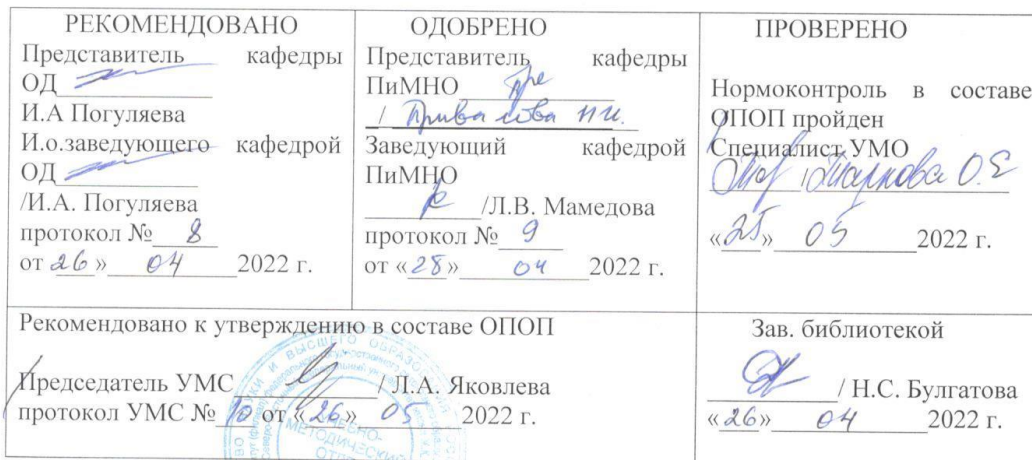 РЕКОМЕНДОВАНО
Представитель кафедры
ОД
И.А Погуляева
И.о.заведующего кафедрой
ОД
/И.А. Погуляева
протокол № 8
от 26» 04 2022 г.
ОДОБРЕНО
Представитель кафедры
ПиМНО
/
Заведующий кафедрой
ПиМНО
/Л.В. Мамедова
протокол № 9
от «28» 04 2022 г.
ПРОВЕРЕНО
Нормоконтроль в составе
ОПОП пройден
Специалист УМО
/
«25» 05 2022 г.
Рекомендовано к утверждению в составе ОПОП
Председатель УМС / Л.А. Яковлева
протокол УМС № 10 от «26» 05 2022 г.
Зав. библиотекой
/ Н.С. Булгатова
«26» 04 2022 г.